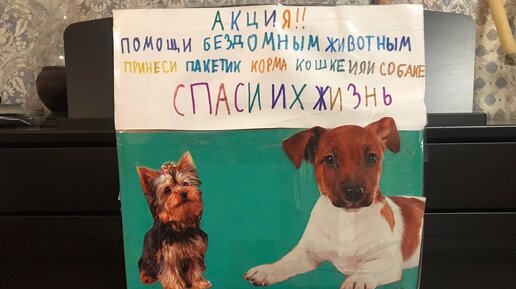 АКЦИЯ!!
ПОМОЩИ БЕЗДОМНЫМ ЖИВОТНЫМ
ПРИНЕСИ ПАКЕТИК КОРМА КОШКЕ ИЛИ СОБАКЕ
СПАСИ ИХ ЖИЗНЬ